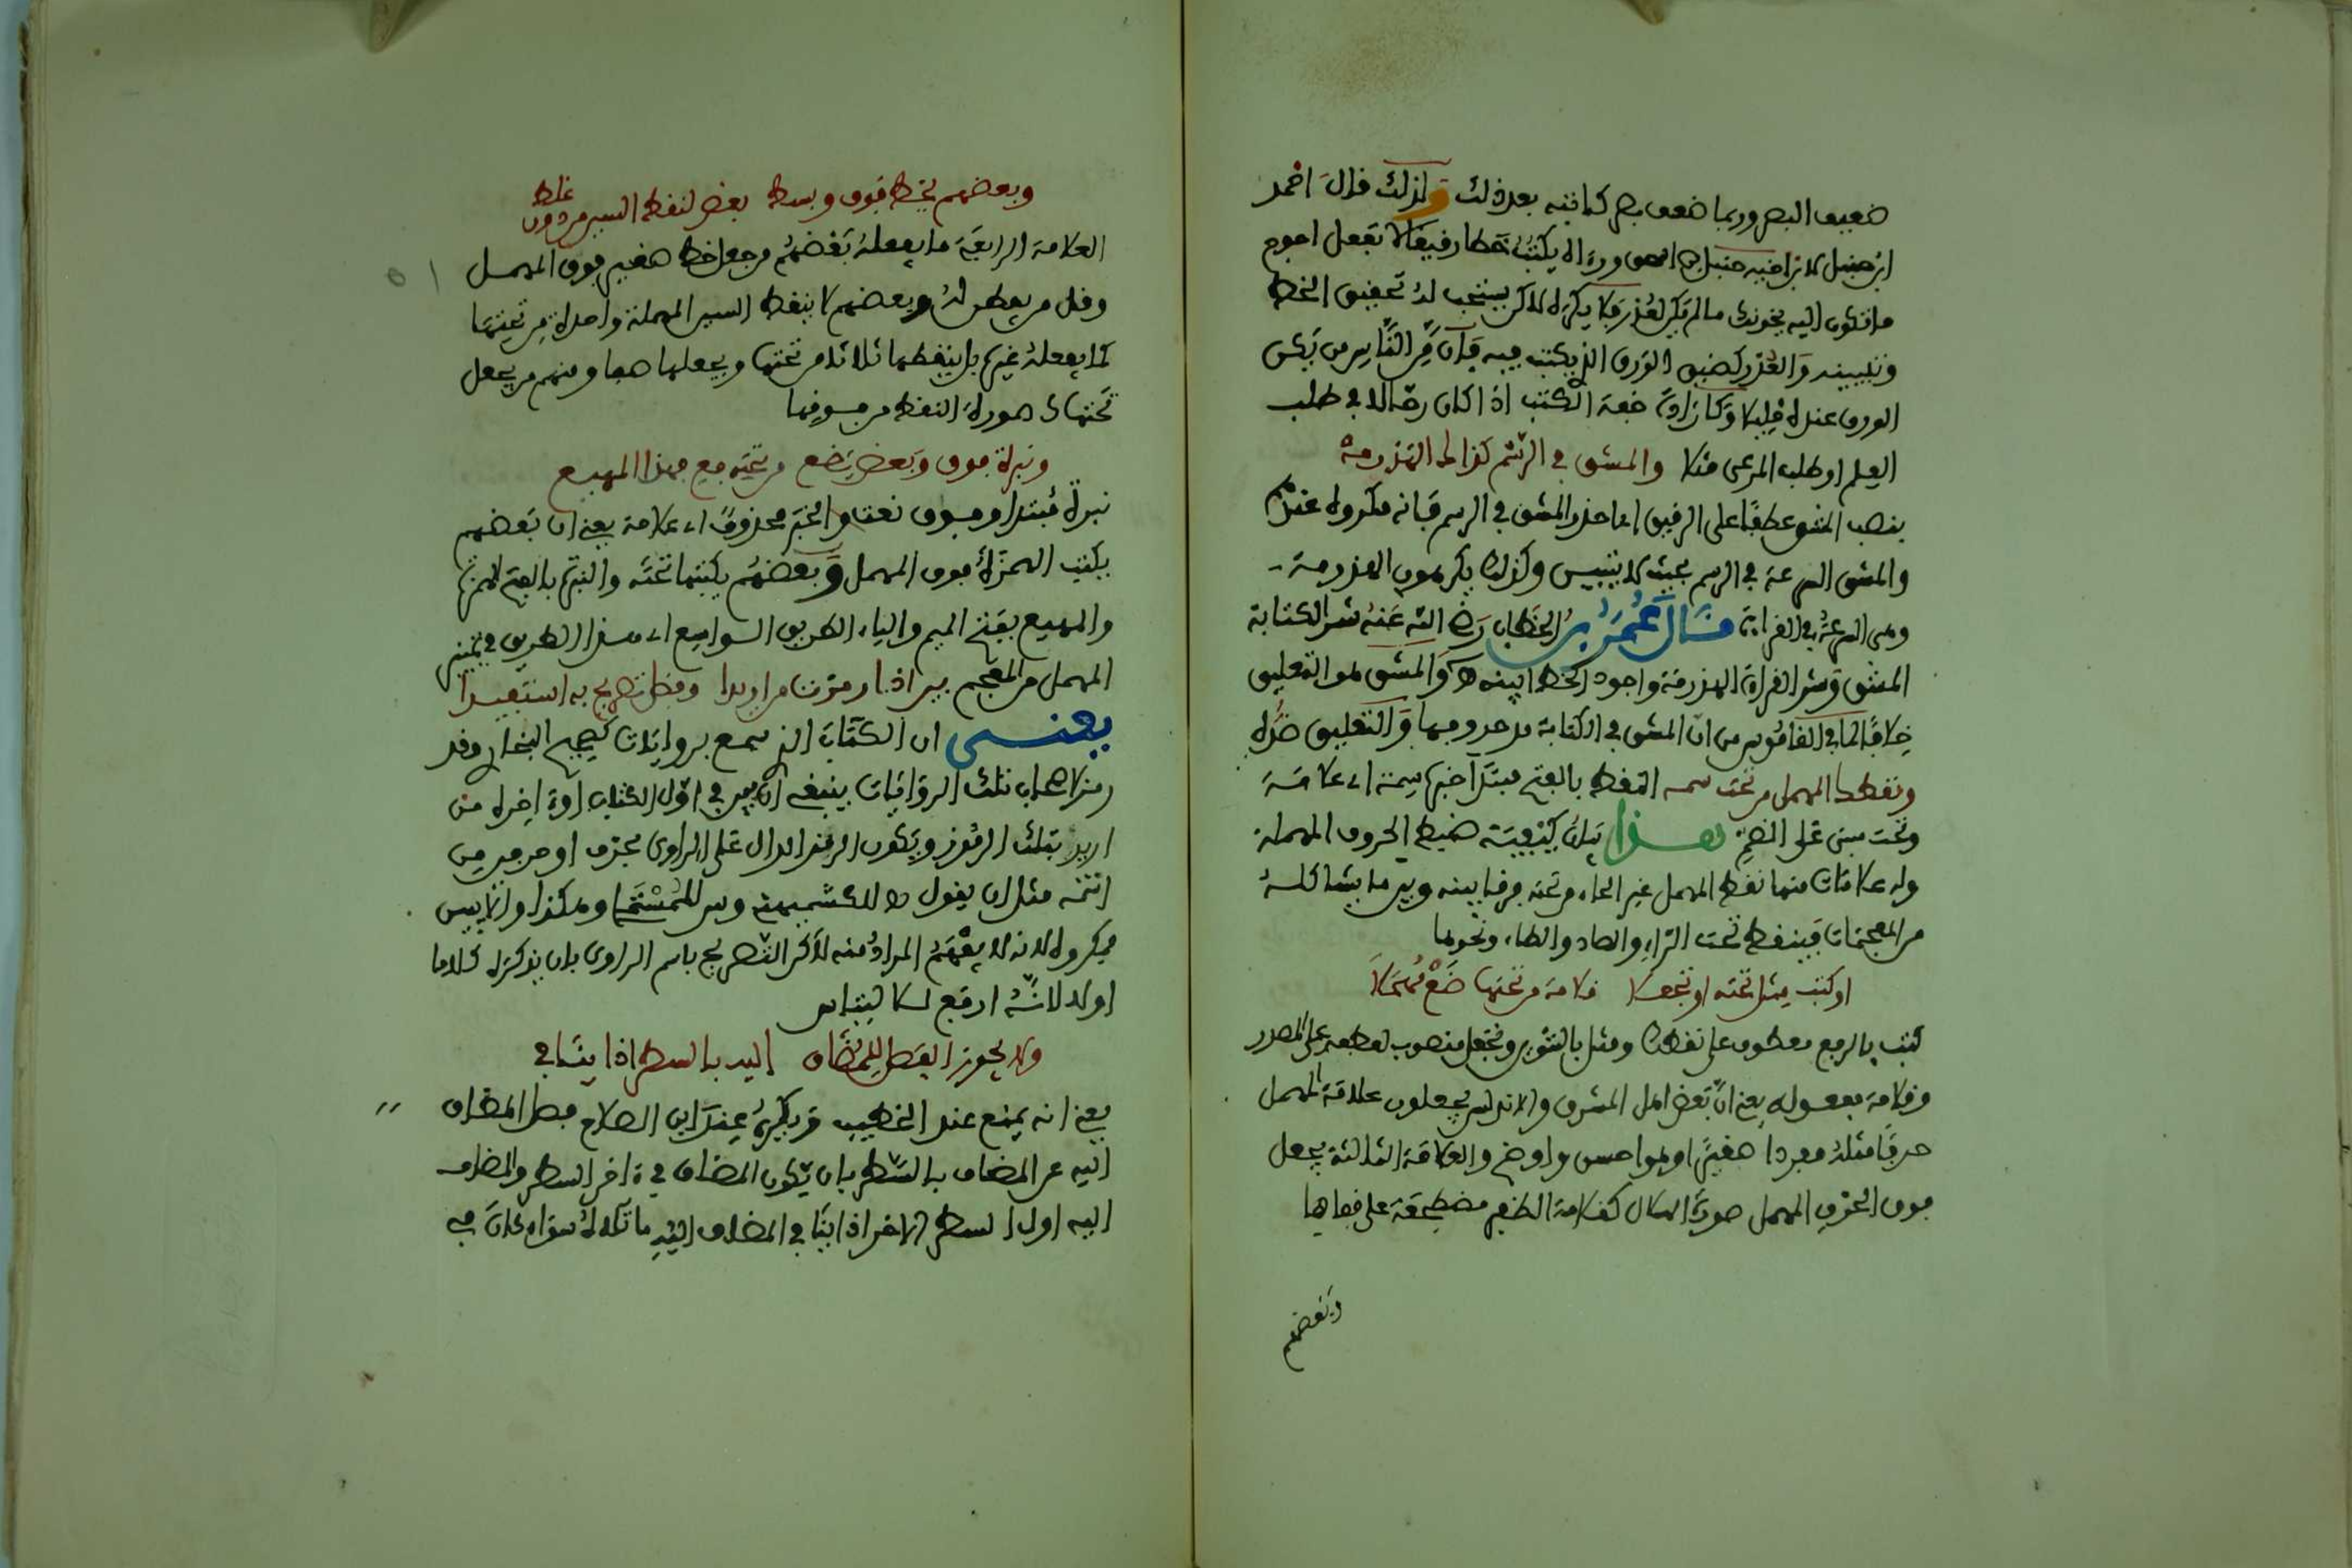 ضعيف البصر وربما ضعف بصر كاتبه بعد ذلك ولذلك قال احمد
ابن حنبل لابن اخيه حنبل بن اسحق ورءاه يكتب خطا رقيقا لا تفعل احوج
ما تكون اليه يخونك ما لم يكن لعذر فلا يكره له لاكن يستحب له تحقيق الخط
وتبيينه والعذر كضيق الورق الذي يكتب فيه فإن من الناس من يكن
الورق عنده قليلا وكارادة خفة الكتب اذا كان رحالا في طلب
العلم او طلب المرعى مثلا والمشق في الرسم كذاك الهذرمة
بنصب المشق عطفا على الرقيق اي احذر المشق في الرسم فانه مكروه عندهم
والمشق السرعة في الرسم بحيث لا تتبيس وكذلك يكرهون الهذرمة
وهي السرعة في القراءة قال عمر بن الخطاب رضي الله عنه شر الكتابة
المشق وشر القراءة الهذرمة واجود الخط ابينه والمشق هو التعليق
خلافا لما في القاموس من ان المشق في الكتابة مد حروفها والتعليق ضده
ونقطك المهمل من تحت سمه النقط بالفتح مبتدأ خبره سمة اي علامة
وتحت مبنى على الضم هذا بيان كيفية ضبط الحروف المهملة
وله علامات منها نقط المهمل غير الحاء من تحته فرقا بينه وبين ما يشاكله
من المعجمات فينقط تحت الراء والصاد والطاء ونحوها
او كتب مثل تحته او تجعلا قلامة من تحتها ضع مهملا
كتب بالرفع معطوف على نقطك ومثل بالتنوين وتجعل منصوب لعطفه على المصدر
وقلامة مفعوله يعني ان بعض اهل المشرق والاندلس يجعلون علامة المهمل
حرفا مثله مفردا صغيرا وهو احسن واوضح والعلامة الثالثة يجعل
فوق الحرف المهمل صورة الهلال كقلامة الظفر مضطجعة على قفاها
وبعضهم
وبعضهم يخط فوق وبسط بعض لنقط السين مردوف غلط
العلامة الرابعة ما يفعله بعضهم من جعل خط صغير فوق المهمل
وقل من يفطن له وبعضهم لا ينقط السين المهملة واحدة من تحتها
كما يفعله غيره بل ينقطها ثلاثا من تحتها ويجعلها صفا ومنهم من يجعل
تحتها كصورة النقط من فوقها
ونبرة فوق وبعض يضع من تحته فع بهذا المهيع
نبرة مبتدا وفوق نعت والخبر محذوف اي علامة يعني ان بعضهم
يكتب الهمزة فوق المهمل وبعضهم يكتبها تحته والنبر بالفتح الهمز
والمهيع بفتح الميم والياء الطريق الواسع اي هذا الطريق في تمييز
المهمل من المعجم بين اذا رمزت من اريدا وفضل تصريح به استفيدا
يعنى ان الكتاب الذي سمع بروايات كصحيح البخاري وقد
رمز لاصحاب تلك الروايات ينبغي ان يبين في اول الكتاب او ءاخره من
اريد بتلك الرموز ويكون الرمز الدال على الراوي بحرف او حرفين
انتخه مثل ان يقول ه للكشميهني وس للمستملي وهكذا والا يبين
فيكروه لانه لا يفهم المراد منه لاكن التصريح باسم الراوي بان يذكره كلاما
اوله لانه ارفع للالتباس
ولا يجوز الفصل للمضاف اليه بالسطر اذا ينافي
يعني انه يمنع عند الخطيب ويكره عند ابن الصلاح فصل المضاف
اليه عن المضاف بالسطر بان يكون المضاف في ءاخر السطر والمضاف
اليه اول السطر الاخر اذا ينافي المضاف اليه ما تلاه سواء كان في